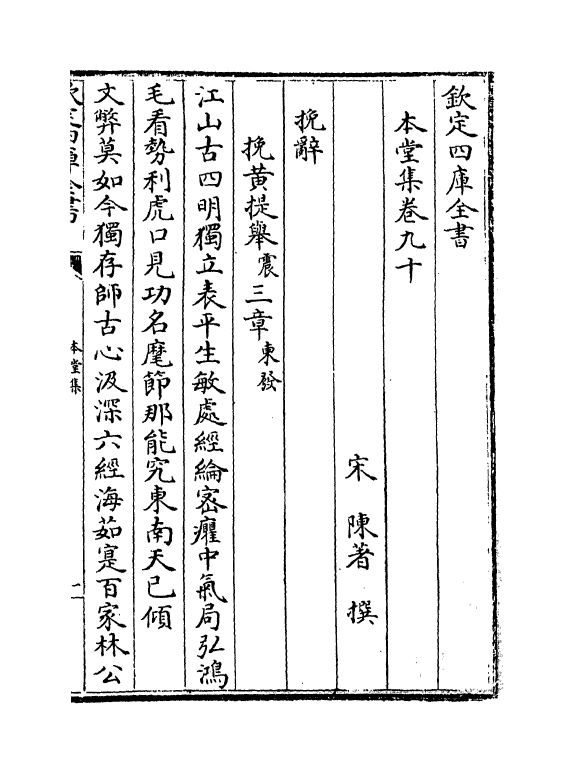 欽定四庫全書
本堂集卷九十
宋 陳著 撰
挽辭
挽黄提舉震三章東發
江山古四明獨立表平生敏處經綸密癯中氣局弘鴻
毛看勢利虎口見功名麾節那能究東南天已傾
文弊莫如今獨存師古心汲深六經海茹寔百家林公
欽定四庫全書
本堂集